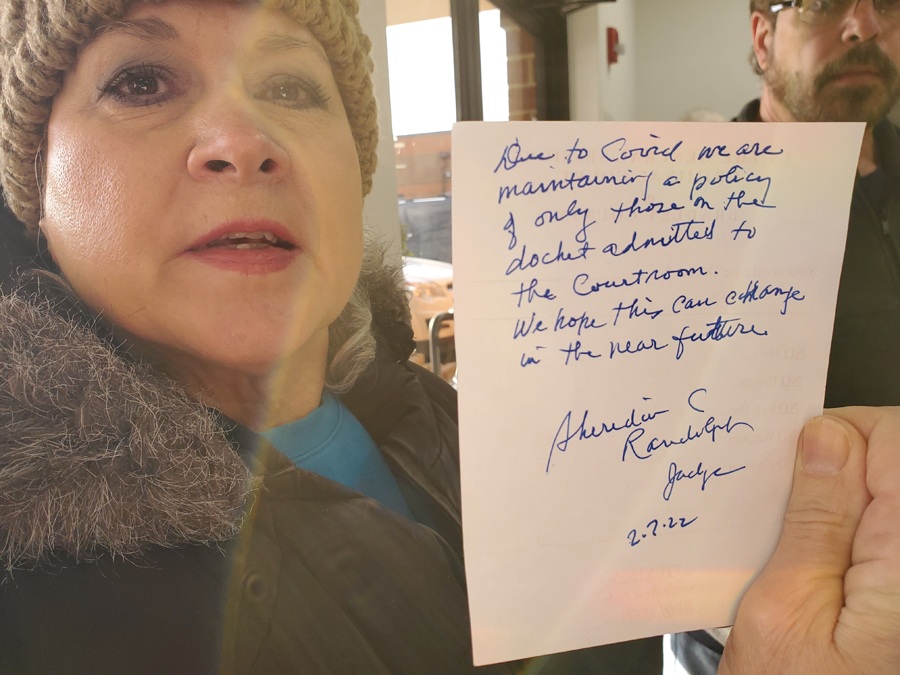 Due to Covid we are
maintaining a policy
of only those on the
docket admitted to
the Courtroom.
We hope this can change
in the near future
Sheridan C
Randolph
Judge
2.7.22